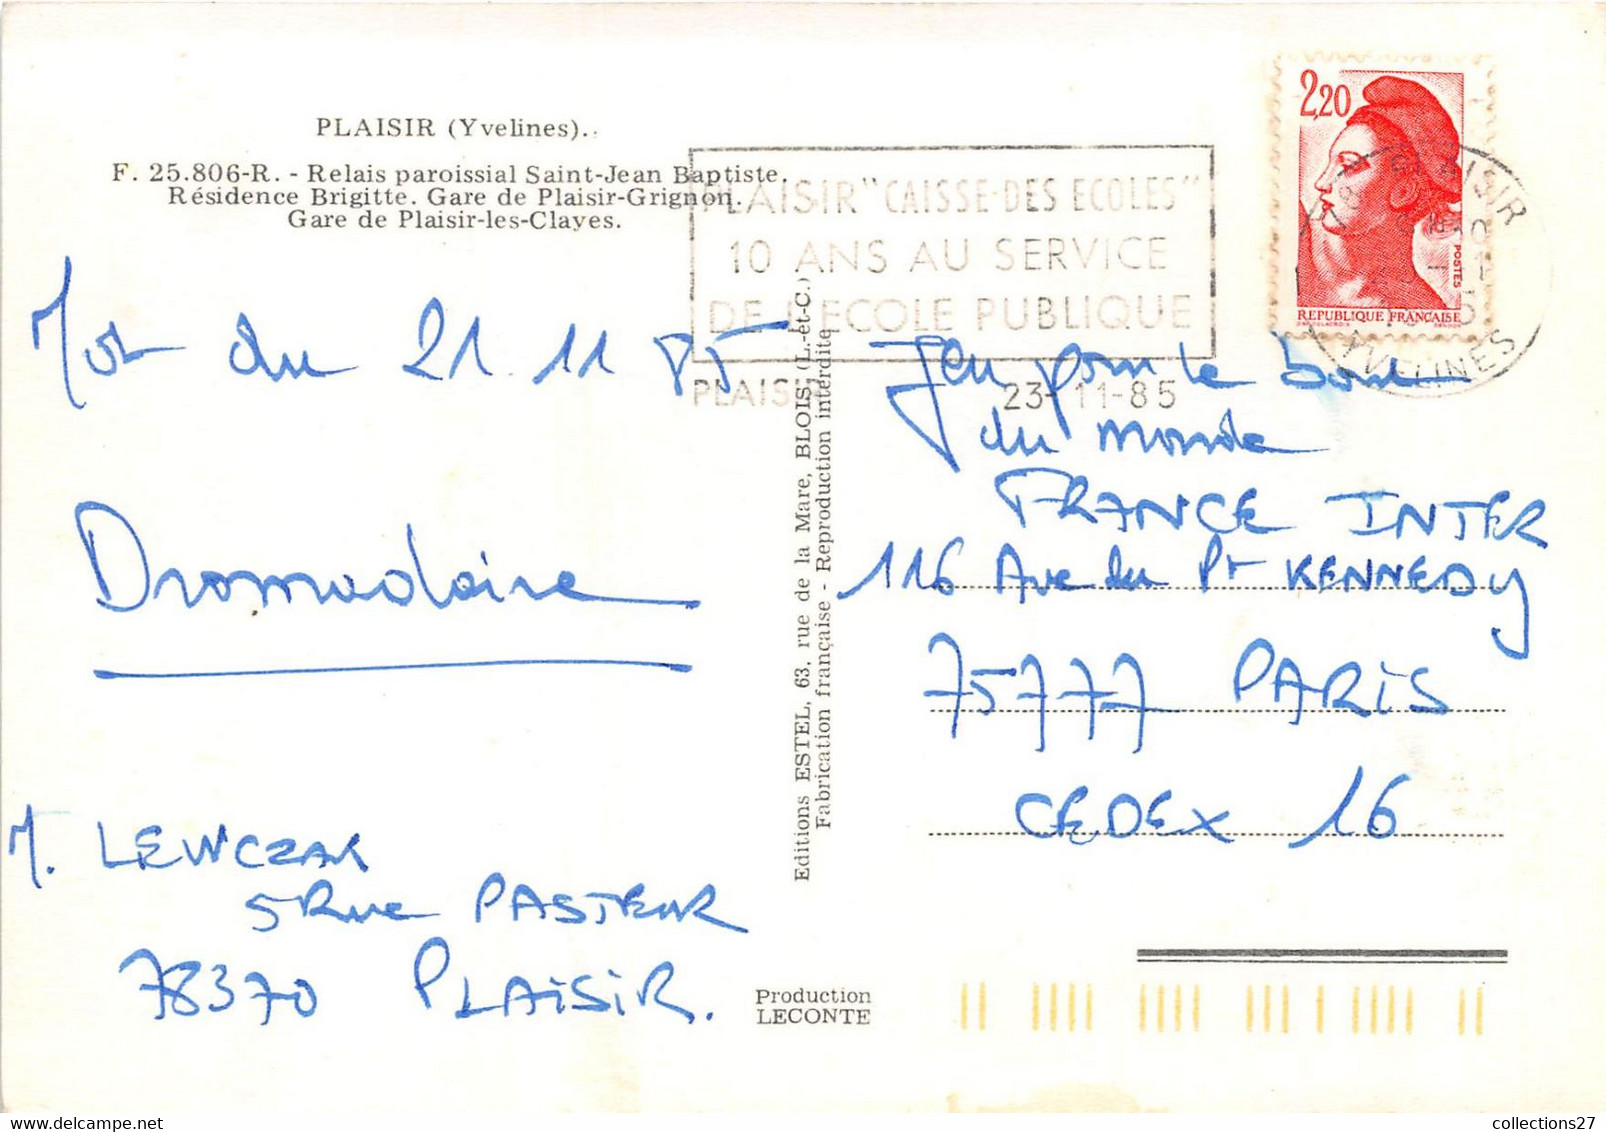 PLAISIR (Yvelines).
F. 25.806-R. - Relais paroissial Saint-Jean Baptiste.
Résidence Brigitte. Gare de Plaisir-Grignon.
Gare de Plaisir-les-Clayes.
PLAISIR "CAISSE-DES ECOLES"
10 ANS AU SERVICE
DE L'ECOLE PUBLIQUE
PLAISIR 23-11-85
2,20
POSTES
REPUBLIQUE FRANÇAISE
PLAISIR
YVELINES
Mot du 21 11 85
Dromadaire
M. LEWCZAK
5 Rue PASTEUR
78370 PLAISIR.
Editions ESTEL, 63, rue de la Mare, BLOIS (L.-et-C.)
Fabrication française - Reproduction interdite
Jeu pour le bout
du monde
FRANCE INTER
116 Ave du Pt KENNEDY
75777 PARIS
CEDEX 16
Production
LECONTE
collections27